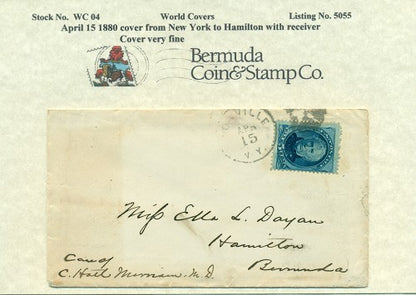 Stock No. WC 04 World Covers Listing No. 5055
April 15 1880 cover from New York to Hamilton with receiver
Cover very fine
Bermuda
Coin&Stamp Co.
VILLE
APR
15
N.Y.
Miss Ella L. Dayan
Hamilton
Bermuda
Care of
C. Hart Merriam M.D.